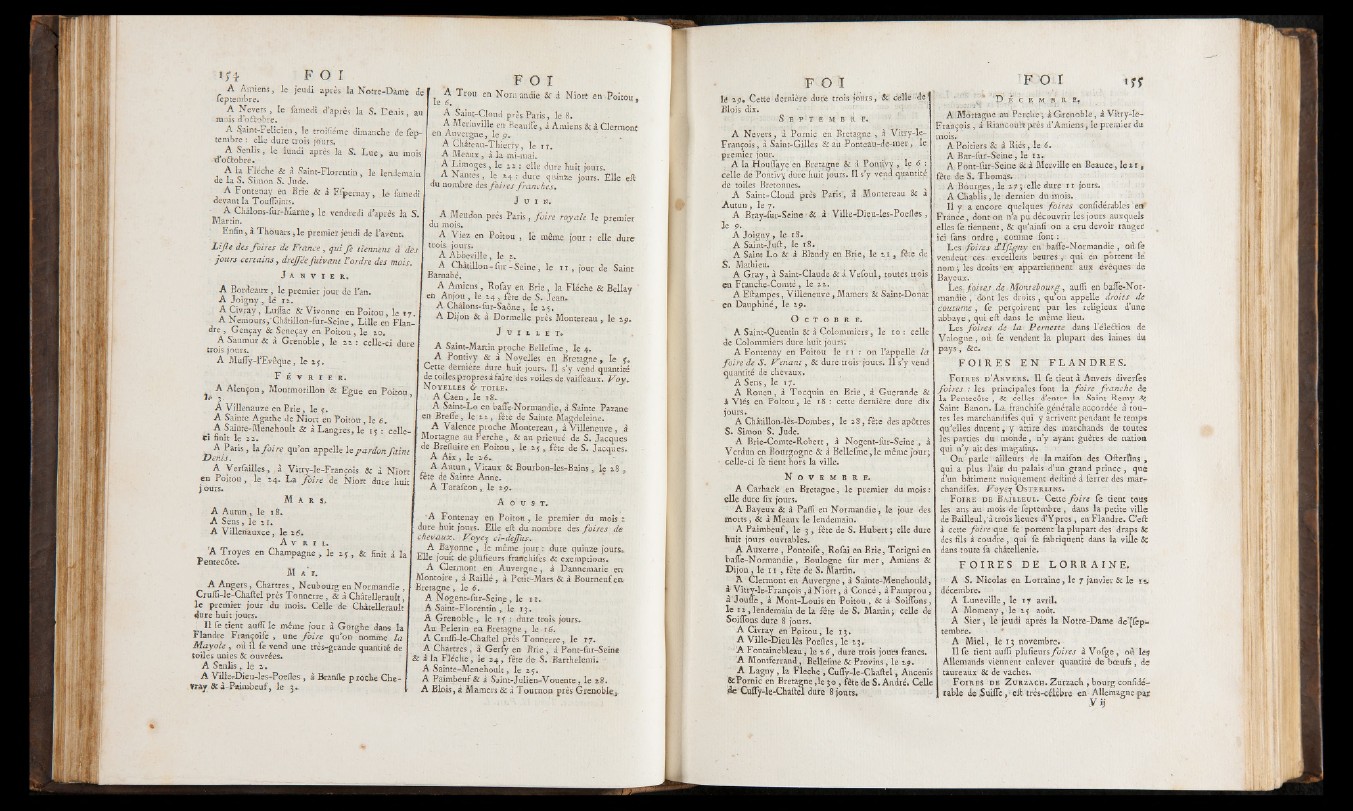 154 FOI
A Amiens, le jeudi après la Notre-Dame de
septembre.
A Nevers, le samedi d'après la S. Denis, au
mois d'octobre.
A Saint-Felicien, le troisiéme dimanche de sep-
tembre : elle dure trois jours.
A Senlis, le lundi après la S. Luc, au mois
d'octobre.
A la Fléche & à Saint-Florentin, le lendemain
de la S. Simon S. Jude.
A Fontenay en Brie & à Espernay, le samedi
devant la Toussaints.
A Châlons-sur-Marne, le vendredi d'après la S.
Martin.
Enfin, à Thouars, le premier jeudi de l'avent.
Liste des foires de France, qui se tiennent à des
jours certains, dressée suivant l'ordre des mois.
JANVIER.
A Bordeaux, le premier jour de l'an.
A Joigny, le 12.
A Civray, Lussac & Vivonne en Poitou, le 17.
A Nemours, Châtillon-sur-Seine, Lille en Flan-
dre, Gençay & Seneçay en Poitou, le 20.
A Saumur & à Grenoble, le 22 : celle-ci dure
trois jours.
A Mussy-l'Evêque, le 25.
FÉVRIER.
A Alençon, Montmorillon & Egue en Poitou,
le 3
A Villenauze en Brie, le 5.
A Sainte Agathe de Niort en Poitou, le 6.
A Sainte-Menehoult & à Langres, le 15 : celle-
ci finit le 22.
A Paris, la foire qu'on appelle le pardon saint
Denis.
A Versailles, à Vitry-le-François & à Niort
en Poitou, le 24. La foire de Niort dure huit
jours.
MARS.
A Autun, le 18.
A Sens, le 21.
A Villenauxce, le 26.
AVRIL.
A Troyes en Champagne, le 25, & finit à la
Pentecôte.
MAI.
A Angers, Chartres, Neubourg en Normandie,
Crussi-le-Chastel près Tonnerre, & à Châtellerault,
le premier jour du mois. Celle de Châtellerault
dure huit jours.
Il se tient aussi le même jour à Gorghe dans la
Flandre Françoise, une foire qu'on nomme la
Mayole, où il se vend une très-grande quantité de
toiles unies & ouvrées.
A Senlis, le 2.
A Ville-Dieu-les-Poesles, à Beausse proche Che-
vray & à Paimbeuf, le 3.
FOI
A Trou en Normandie & à Niort en Poitou,
le 6.
A Saint-Cloud près Paris, le 8.
A Merinville en Beausse, à Amiens & à Clermont
en Auvergne, le 9.
A Château-Thierry, le 11.
A Meaux, à la mi-mai.
A Limoges, le 22 : elle dure huit jours.
A Nantes, le 24 : dure quinze jours. Elle est
du nombre des foires franches.
JUIN.
A Meudon près Paris, foire royale le premier
du mois.
A Viez en Poitou, le même jour : elle dure
trois jours.
A Abbeville, le 2.
A Châtillon-sur-Seine, le 11, jour de Saint
Barnabé.
A Amiens, Rosay en Brie, la Fléche & Bellay
en Anjou, le 24, fête de S. Jean.
A Châlons-sur-Saône, le 25.
A Dijon & à Dornelle près Montereau, le 29.
JUILLET.
A Saint-Martin proche Bellesme, le 4.
A Pontivy & à Noyelles en Bretagne, le 5.
Cette dernière dure huit jours. Il s'y vend quantité
de toiles propres à faire des voiles de vaisseaux. Voy.
NOYELLES & TOILE.
A Caën, le 18.
A Saint-Lo en basse-Normandie, à Sainte Pazane
en Bresse, le 22, fête de Sainte Magdeleine.
A Valence proche Montereau, à Villeneuve, à
Mortagne au Perche, & au prieuré de S. Jacques
de Bressuire en Poitou, le 25, fête de S. Jacques.
A Aix, le 26.
A Autun, Vitaux & Bourbon-les-Bains, le 28,
fête de Sainte Anne.
A Tarascon, le 29.
AOUST.
A Fontenay en Poitou, le premier du mois :
dure huit jours. Elle est du nombre des foires de
chevaux. Voyez ci-dessus.
A Bayonne, le même jour : dure quinze jours.
Elle jouit de plusieurs franchises & exemptions.
A Clermont en Auvergne, à Dannemarie en
Montoire, à Raillé, à Petit-Mars & à Bourneuf en
Bretagne, le 6.
A Nogent-sur-Seine, le 11.
A Saint-Florentin, le 13.
A Grenoble, le 15 : dure trois jours.
Au Pelerin en Bretagne, le 16.
A Crussi-le-Chastel près Tonnerre, le 17.
A Chartres, à Gersy en Brie, à Pont-sur-Seine
& à la Fléche, le 24, fête de S. Barthelemi.
A Sainte-Menehoult, le 25.
A Paimbeuf & à Saint-Julien-Vouente, le 28.
A Blois, à Mamers & à Tournon près Grenoble,
FOI
le 29. Cette dernière dure trois jours, & celle de
Blois dix.
SEPTEMBRE.
A Nevers, à Pornic en Bretagne, à Vitry-le-
François, à Saint-Gilles & au Ponteau-de-mer, le
premier jour.
A la Houssaye en Bretagne & à Pontivy, le 6 :
celle de Pontivy dure huit jours. Il s'y vend quantité
de toiles Bretonnes.
A Saint-Cloud près Paris, à Montereau & à
Autun, le 7.
A Bray-sur-Seine & à Ville-Dieu-les-Poesles,
le 9.
A Joigny, le 18.
A Saint-Just, le 18.
A Saint Lo & à Blendy en Brie, le 21, fête de
S. Mathieu.
A Gray, à Saint-Claude & à Vesoul, toutes trois
en Franche-Comté, le 22.
A Estampes, Villeneuve, Mamers & Saint-Donat
en Dauphiné, le 29.
OCTOBRE.
A Saint-Quentin & à Colommiers, le 10 : celle
de Colommiers dure huit jours.
A Fontenay en Poitou le 11 : on l'appelle la
foire de S. Venant, & dure trois jours. Il s'y vend
quantité de chevaux.
A Sens, le 17.
A Rouen, à Tocquin en Brie, à Guerande &
à Vlés en Poitou, le 18 : cette dernière dure dix
jours.
A Châtillon-lès-Dombes, le 28, fête des apôtres
S. Simon S. Jude.
A Brie-Comte-Robert, à Nogent-sur-Seine, à
Verdun en Bourgogne & à Bellesme, le même jour;
celle-ci se tient hors la ville.
NOVEMBRE.
A Carhack en Bretagne, le premier du mois :
elle dure six jours.
A Bayeux & à Passi en Normandie, le jour des
morts, & à Meaux le lendemain.
A Paimbeuf, le 3, fête de S. Hubert; elle dure
huit jours ouvrables.
A Auxerre, Pontoise, Rosai en Brie, Torigni en
basse-Normandie, Boulogne sur mer, Amiens &
Dijon, le 11, fête de S. Martin.
A Clermont en Auvergne, à Sainte-Menehould,
à Vitry-le-François, à Niort, à Concé, à Pamprou,
à Jousse, à Mont-Louis en Poitou, & à Soissons,
le 12, lendemain de la fête de S. Martin; celle de
Soissons dure 8 jours.
A Civray en Poitou, le 13.
A Ville-Dieu lès Poesles, le 23.
A Fontainebleau, le 26, dure trois jours francs.
A Montferrand, Bellesme & Provins, le 29.
A Lagny, la Fleche, Cussy-le-Chastel, Ancenis
& Pornic en Bretagne, le 30, fête de S. André. Celle
de Cussy-le-Chastel dure 8 jours.
FOI 155
DÉCEMBRE.
A Mortagne au Perche, à Grenoble, à Vitry-le-
François, à Riancourt près d'Amiens, le premier du
mois.
A Poitiers & à Riés, le 6.
A Bar-sur-Seine, le 12.
A Pont-sur-Seine & à Merville en Beauce, le 21,
fête de S. Thomas.
A Bourges, le 27; elle dure 11 jours.
A Chablis, le dernier du mois.
Il y a encore quelques foires considérables en
France, dont on n'a pu découvrir les jours auxquels
elles se tiennent, & qu'ainsi on a cru devoir ranger
ici sans ordre, comme sont :
Les foires d'Isigny en basse-Normandie, où se
vendent ces excellens beures, qui en portent le
nom; les droits en appartiennent aux évêques de
Bayeux.
Les foires de Montebourg, aussi en basse-Nor-
mandie, dont les droits, qu'on appelle droits de
coutume, se perçoivent par les religieux d'une
abbaye, qui est dans le même lieu.
Les foires de la Pernette dans l'élection de
Valogne, où se vendent la plupart des laines du
pays, &c.
FOIRES EN FLANDRES.
FOIRES D'ANVERS. Il se tient à Anvers diverses
foires : les principales sont la foire franche de
la Pentecôte, & celles d'entre la Saint Remy &
Saint Banon. La franchise générale accordée à tou-
tes les marchandises qui y arrivent pendant le temps
qu'elles durent, y attire des marchands de toutes
les parties du monde, n'y ayant guères de nation
qui n'y ait des magasins.
On parle ailleurs de la maison des Osterlins,
qui a plus l'air du palais d'un grand prince, que
d'un bâtiment uniquement destiné à serrer des mar-
chandises. Voyez OSTERLINS.
FOIRE DE BAILLEUL. Cette foire se tient tous
les ans au mois de septembre, dans la petite ville
de Bailleul, à trois lieues d'Ypres, en Flandre. C'est
à cette foire que se portent la plupart des draps &
des fils à coudre, qui se fabriquent dans la ville &
dans toute sa châtellenie.
FOIRES DE LORRAINE.
A S. Nicolas en Lorraine, le 7 janvier & le
décembre.
A Luneville, le 17 avril.
A Momeny, le 25 août.
A Sier, le jeudi après la Notre-Dame de sep-
tembre.
A Miel, le 13 novembre.
Il se tient aussi plusieurs foires à Vosge, où les
Allemands viennent enlever quantité de bœufs, de
taureaux & de vaches.
FOIRES DE ZURZACH. Zurzach, bourg considé-
rable de Suisse, est très-célèbre en Allemagne par
V ij